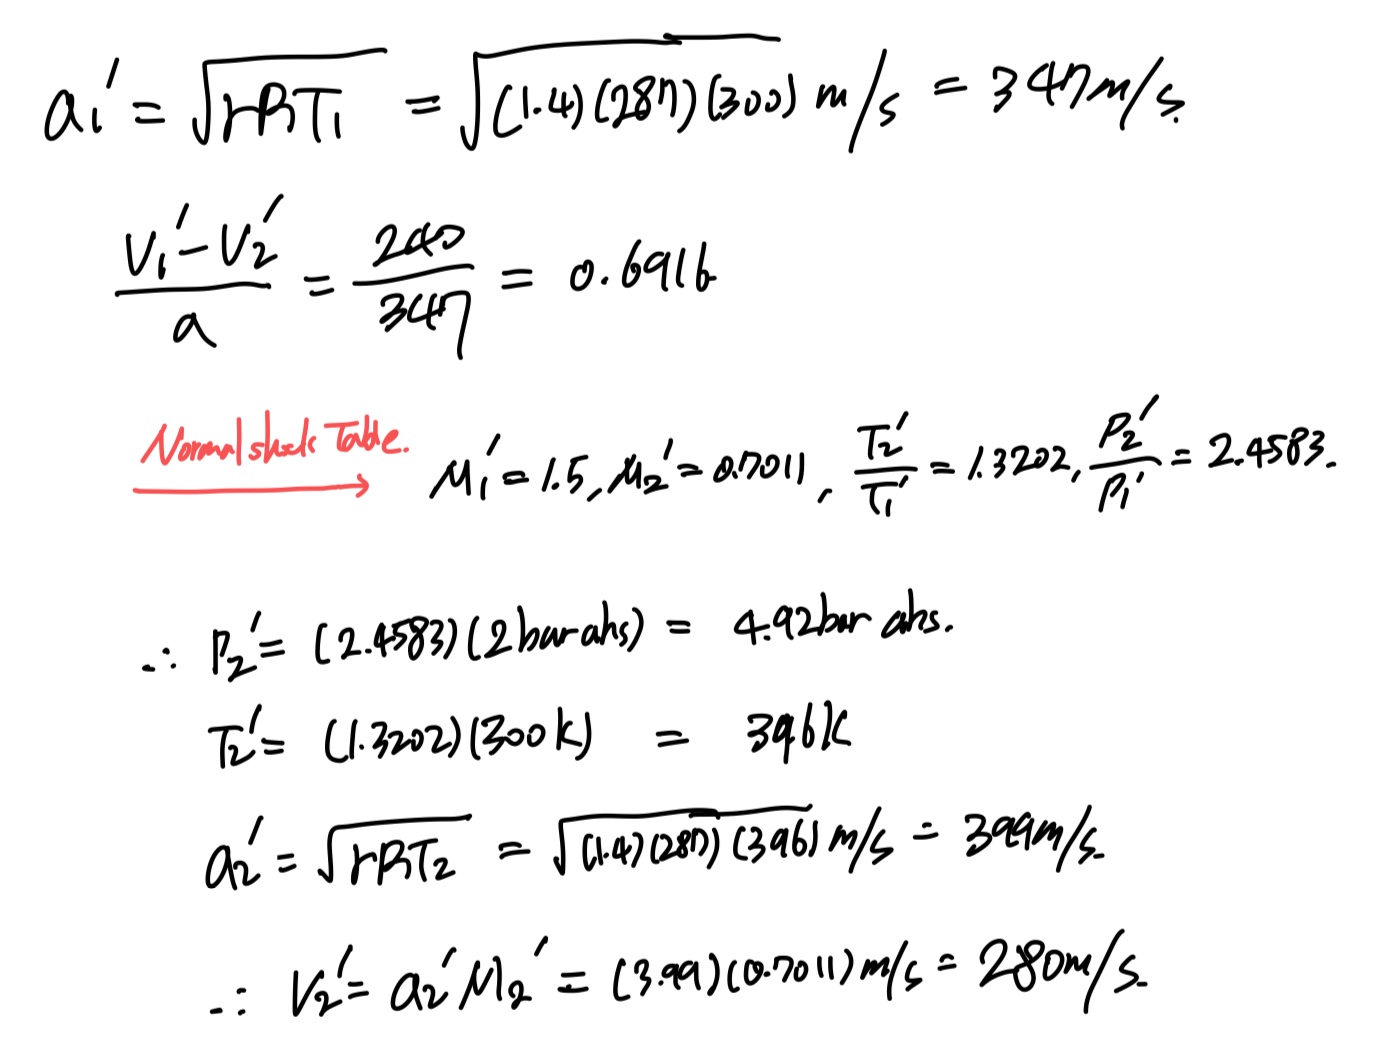 a₁' = √(γRT₁) = √((1.4)(287)(300)) m/s = 347m/s.
(V₁' - V₂')/a = 240/347 = 0.6916
Normal shock Table.
M₁' = 1.5, M₂' = 0.7011, T₂'/T₁' = 1.3202, P₂'/P₁' = 2.4583.
∴ P₂' = (2.4583)(2bar abs) = 4.92bar abs.
T₂' = (1.3202)(300K) = 396K
a₂' = √(γRT₂) = √((1.4)(287)(396)) m/s = 399m/s.
∴ V₂' = a₂'M₂' = (3.99)(0.7011) m/s = 280m/s.